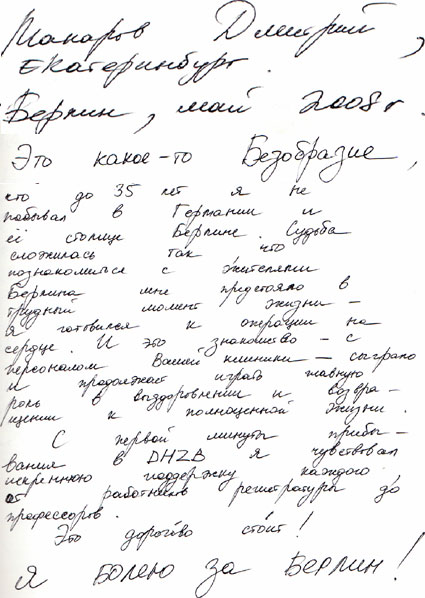 Макаров Дмитрий,
Екатеринбург.
Берлин, май 2008 г.
Это какое-то Безобразие,
что до 35 лет я не
побывал в Германии и
её столице Берлине. Судьба
сложилась так что
познакомиться с жителями
Берлина мне предстояло в
трудный момент жизни –
я готовился к операции на
сердце. И это знакомство – с
персоналом Вашей клиники – сыграло
и продолжает играть главную
роль в выздоровлении и возвра-
щении к полноценной жизни.
С первой минуты прибы-
вания в DHZB я чувствовал
искреннюю поддержку каждого
от работников регистратуры до
профессоров.
Это дорогого стоит!
Я БОЛЕЮ ЗА БЕРЛИН!